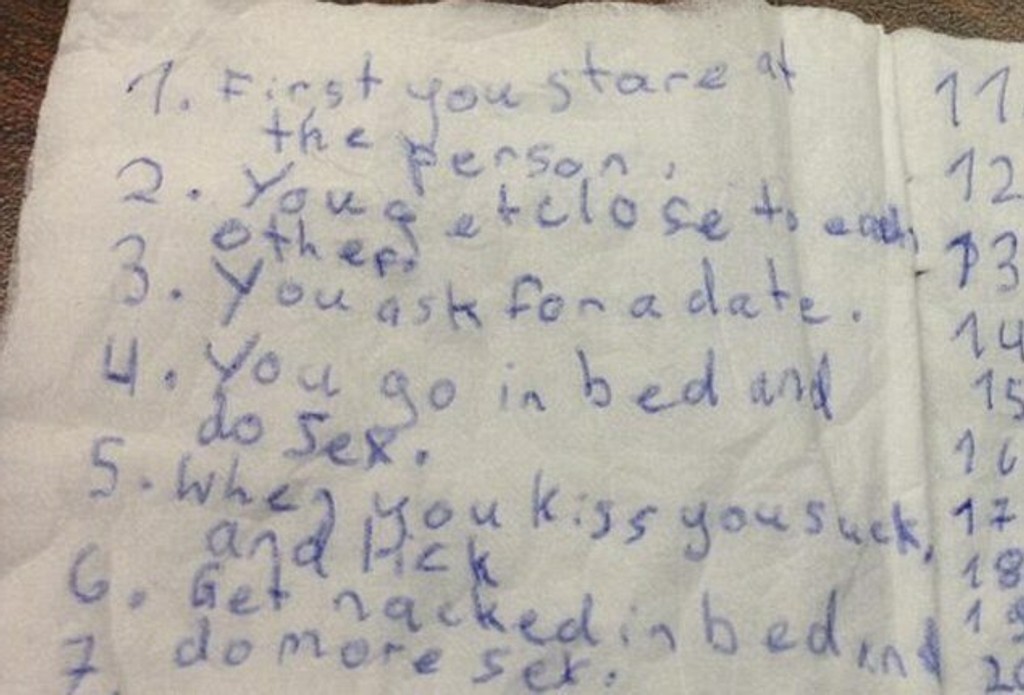 1. First you stare at
the person.
2. You get close to each
other.
3. You ask for a date.
4. You go in bed and
do sex.
5. When you kiss you suck,
and lick
6. Get nacked in bed and
do more sex.
7.
11
12
13
14
15
16
17
18
19
20